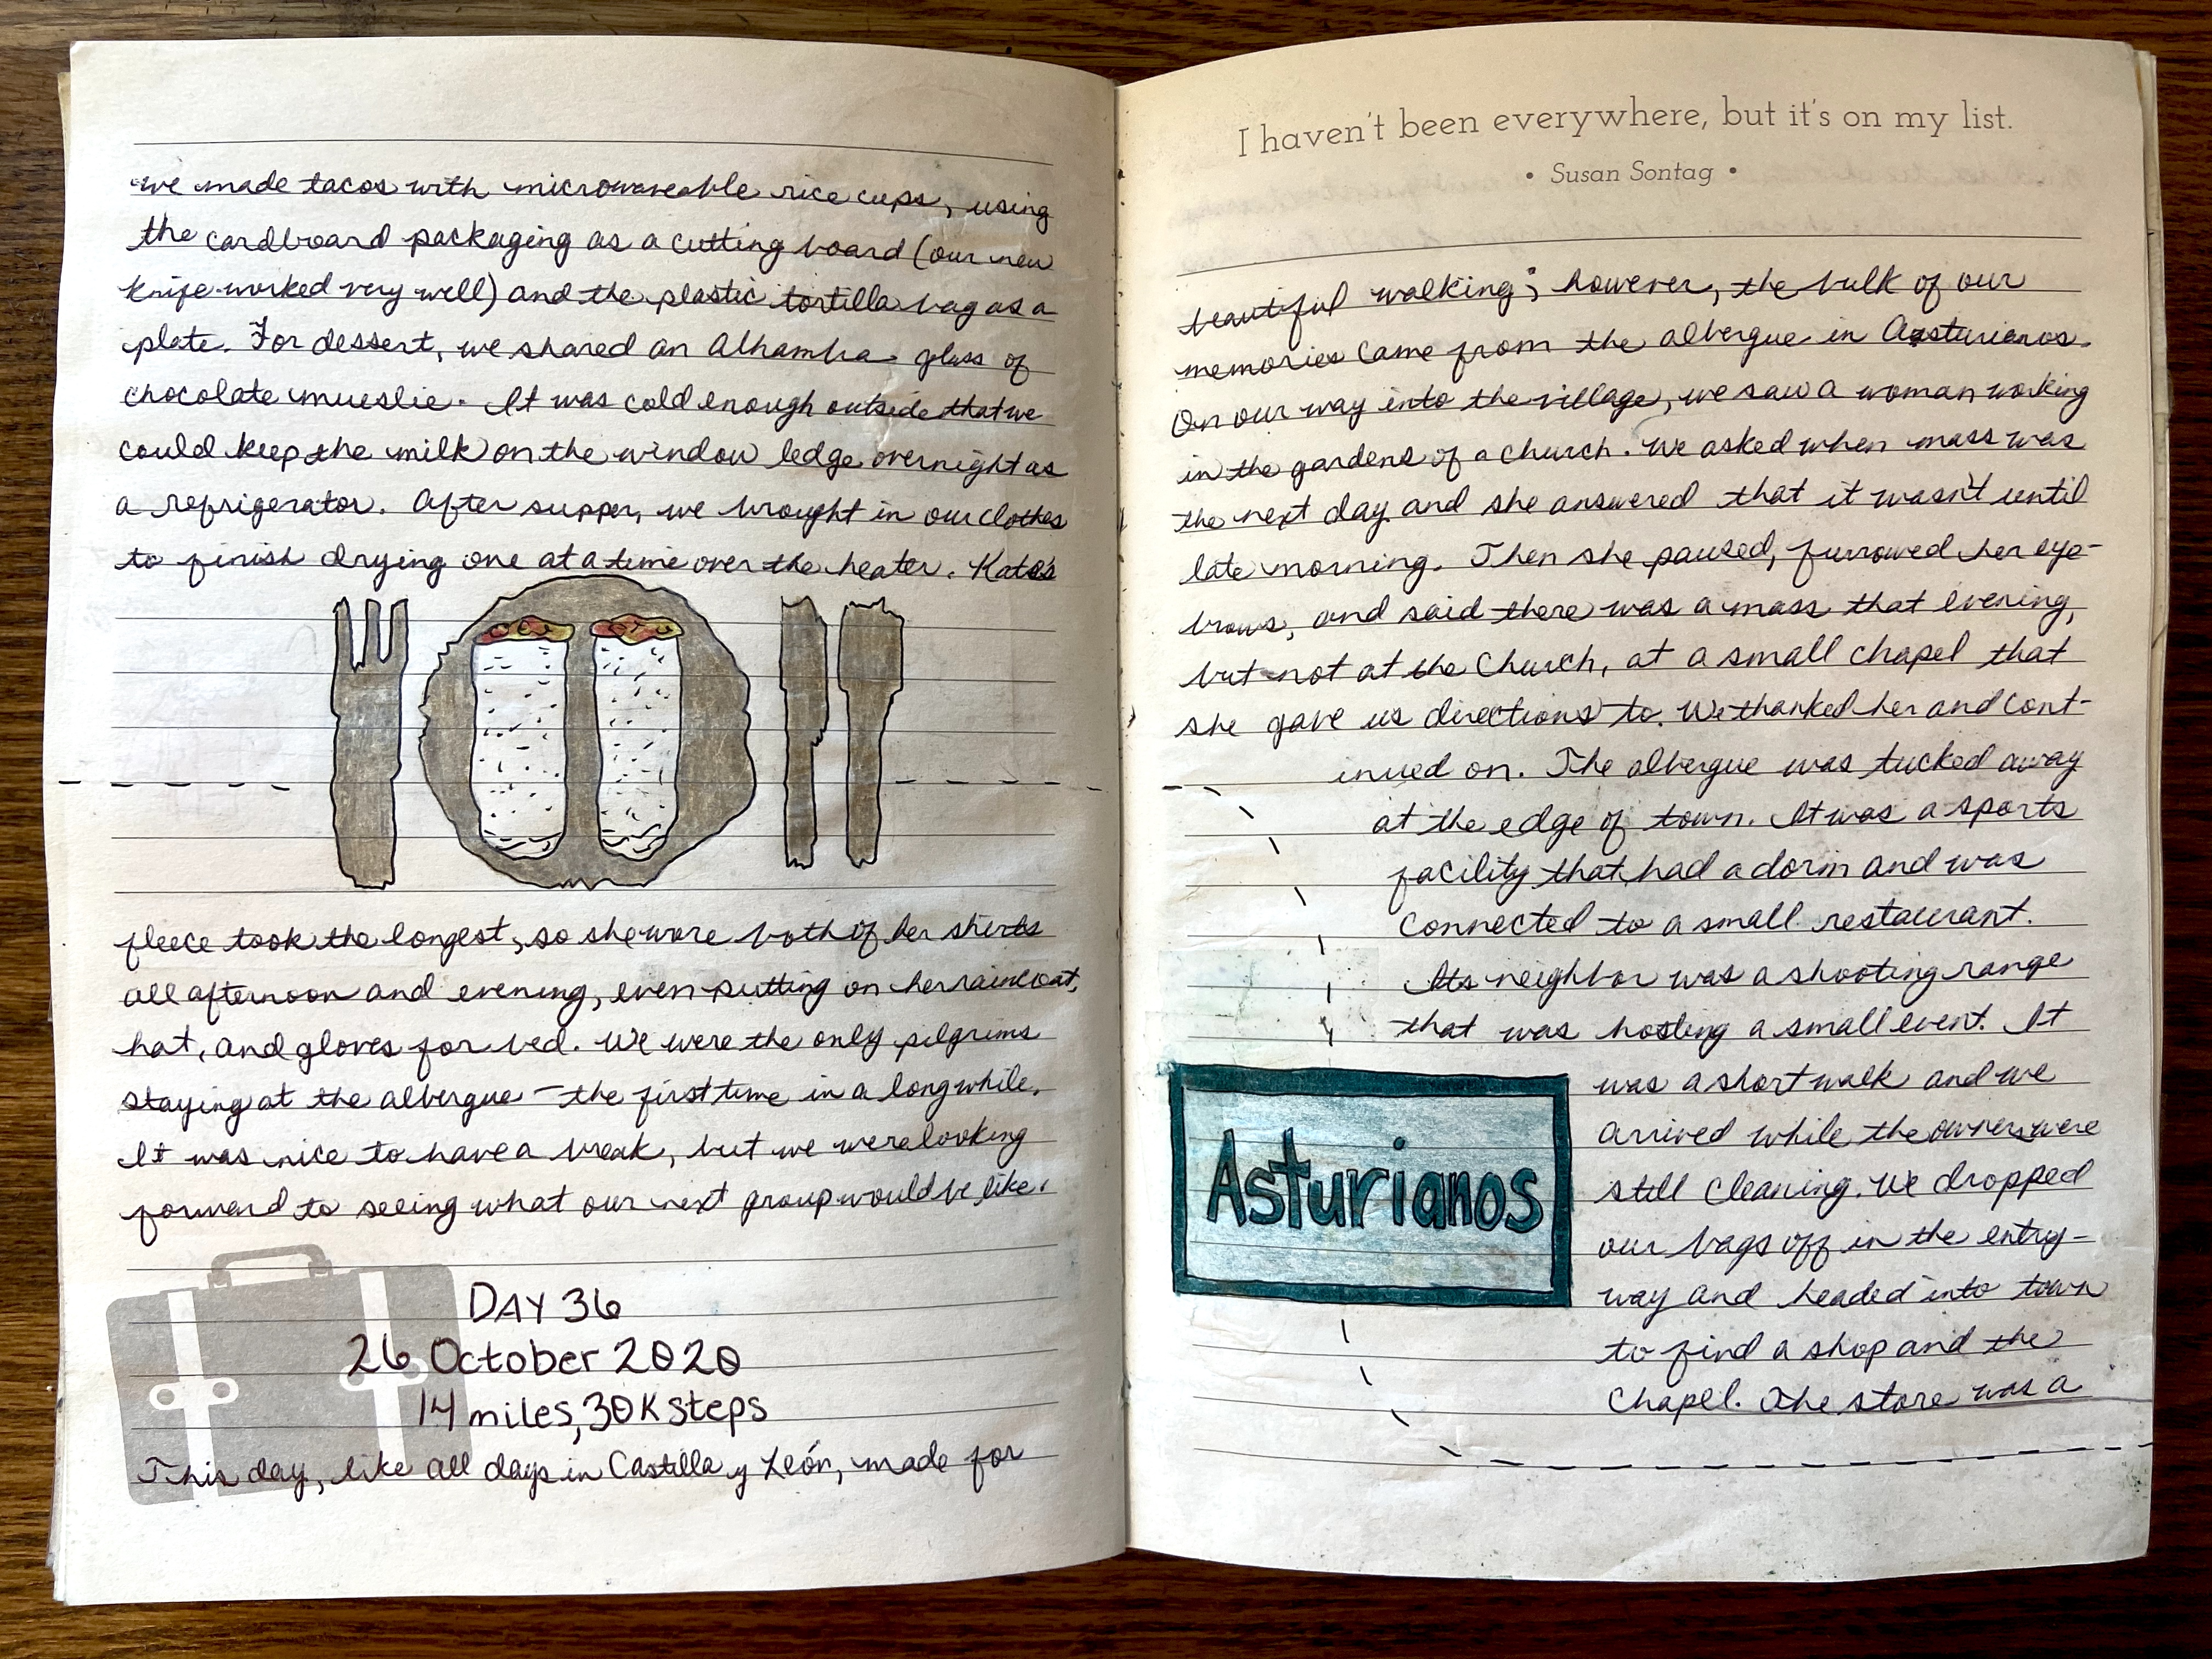 we made tacos with microwaveable rice cups, using
the cardboard packaging as a cutting board (our new
knife worked very well) and the plastic tortilla bag as a
plate. For dessert, we shared an Alhambra glass of
chocolate mueslie. It was cold enough outside that we
could keep the milk on the window ledge overnight as
a refrigerator. After supper, we brought in our clothes
to finish drying one at a time over the heater. Kate's
fleece took the longest, so she wore both of her shirts
all afternoon and evening, even putting on her raincoat,
hat, and gloves for bed. We were the only pilgrims
staying at the albergue – the first time in a long while.
It was nice to have a break, but we were looking
forward to seeing what our next group would be like.
DAY 36
26 October 2020
14 miles, 30K steps
This day, like all days in Castilla y León, made for
I haven't been everywhere, but it's on my list.
• Susan Sontag •
beautiful walking; however, the bulk of our
memories came from the albergue in Asturianos.
On our way into the village, we saw a woman working
in the gardens of a church. We asked when mass was
the next day and she answered that it wasn't until
late morning. Then she paused, furrowed her eye-
brows, and said there was a mass that evening,
but not at the church, at a small chapel that
she gave us directions to. We thanked her and cont-
inued on. The albergue was tucked away
at the edge of town. It was a sports
facility that had a dorm and was
connected to a small restaurant.
Its neighbor was a shooting range
that was hosting a small event. It
was a short walk and we
arrived while the owners were
still cleaning. We dropped
our bags off in the entry-
way and headed into town
to find a shop and the
chapel. The store was a
Asturianos